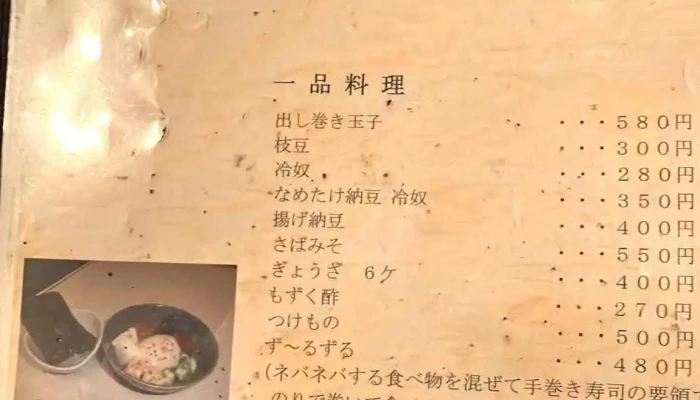 一品料理
出し巻き玉子 ・・・５８０円
枝豆 ・・・３００円
冷奴 ・・・２８０円
なめたけ納豆 冷奴 ・・・３５０円
揚げ納豆 ・・・４００円
さばみそ ・・・５５０円
ぎょうざ　６ケ ・・・４００円
もずく酢 ・・・２７０円
つけもの ・・・５００円
ず～るずる ・・・４８０円
(ネバネバする食べ物を混ぜて手巻き寿司の要領で
のりで巻いて食